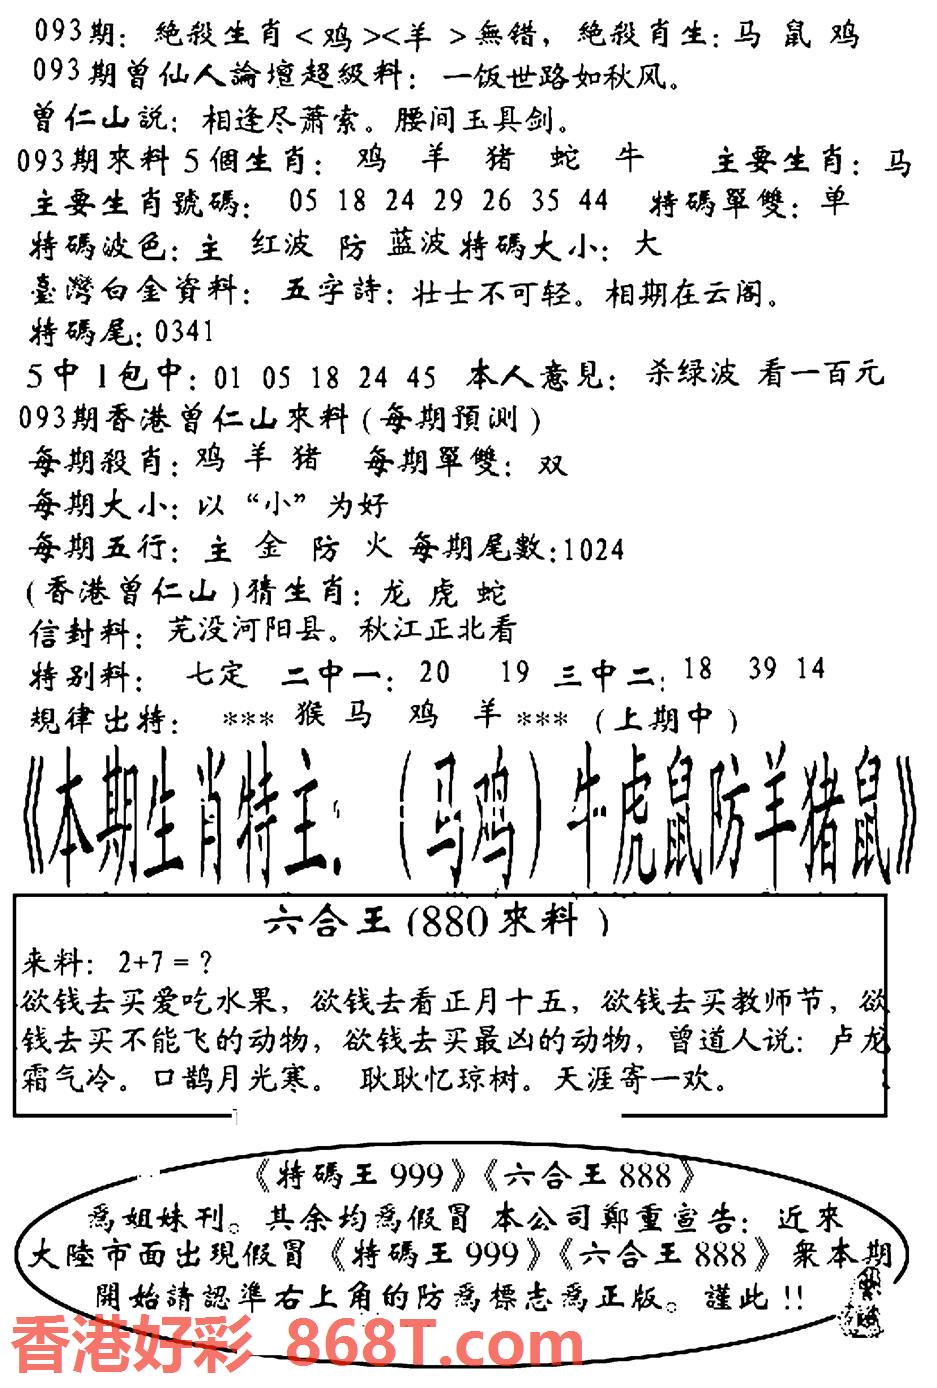 093期: 絶殺生肖<鸡><羊 >無错, 絶殺肖生: 马 鼠 鸡
093期曾仙人論壇超級料: 一饭世路如秋风。
曾仁山説: 相逢尽萧索。腰间玉具剑。
093期來料5個生肖: 鸡 羊 猪 蛇 牛 主要生肖: 马
主要生肖號碼: 05 18 24 29 26 35 44 特碼單雙: 单
特碼波色: 主 红波 防 蓝波 特碼大小: 大
臺灣白金資料: 五字詩: 壮士不可轻。相期在云阁。
特碼尾: 0341
5中1包中: 01 05 18 24 45 本人意見: 杀绿波 看一百元
093期香港曾仁山來料(每期預測)
每期殺肖: 鸡 羊 猪 每期單雙: 双
每期大小: 以“小”为好
每期五行: 主 金 防 火 每期尾數: 1024
(香港曾仁山)猜生肖: 龙 虎 蛇
信封料: 芜没河阳县。秋江正北看
特别料: 七定 二中一: 20 19 三中二: 18 39 14
規律出特: *** 猴 马 鸡 羊 *** (上期中)
《本期生肖特主: (马鸡) 牛虎鼠防羊猪鼠》
六合王(880來料)
来料: 2+7=?
欲钱去买爱吃水果, 欲钱去看正月十五, 欲钱去买教师节, 欲
钱去买不能飞的动物, 欲钱去买最凶的动物, 曾道人说: 卢龙
霜气冷。口鹊月光寒。 耿耿忆琼树。天涯寄一欢。
《特碼王999》《六合王888》
爲姐妹刊。其余均爲假冒 本公司鄭重宣告: 近來
大陸市面出現假冒《特碼王999》《六合王888》衆本期
開始請認準右上角的防爲標志爲正版。謹此!!
香港好彩 868T.com